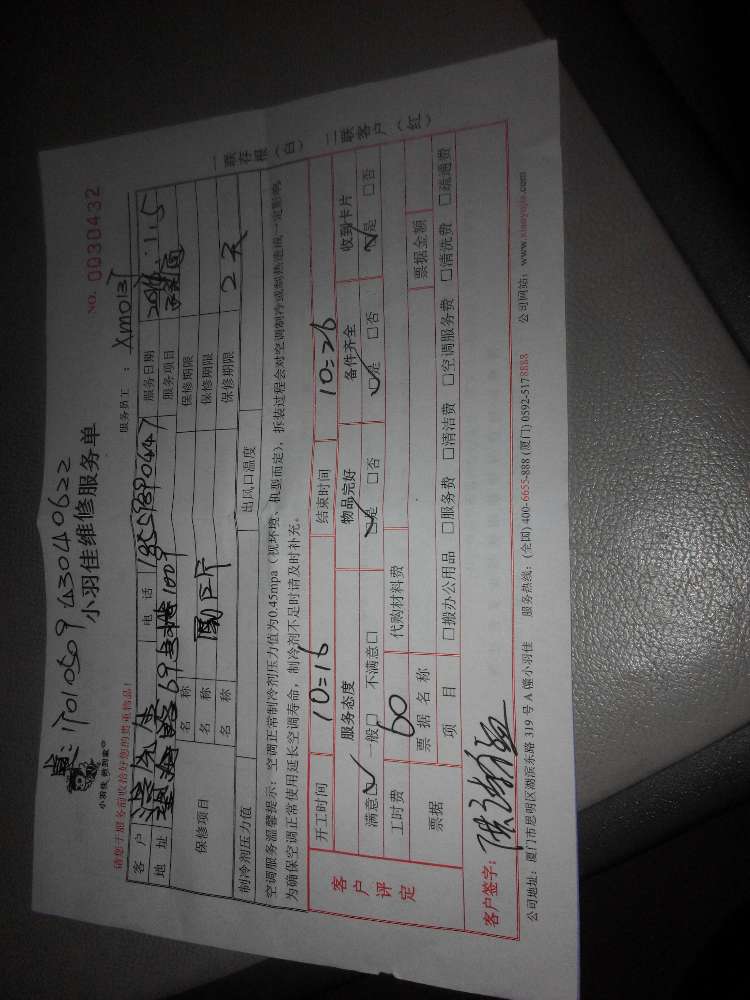 1701050943040622
小羽佳维修服务单
NO. 0030432
小羽佳 想到家
请您于服务前收拾好您的贵重物品!
服务员工：
一联存根（白） 二联客户（红）
客户 电话 18559890447 服务日期
地址 69 1009 服务项目
保修项目 名称 保修期限
名称 保修期限
名称 保修期限 2天
制冷剂压力值 出风口温度
空调服务温馨提示：空调正常制冷剂压力值为0.45mpa（视环境、机型而定），拆装过程会对空调制冷或制热造成一定影响，
为确保空调正常使用延长空调寿命，制冷剂不足时请及时补充。
客户评定
开工时间 10:16 结束时间 10:26
服务态度 物品完好 备件齐全 收到卡片
满意☑ 一般□ 不满意□ ☑是 □否 ☑是 □否 ☑是 □否
工时费 60 代购材料费
票据 票据名称 票据金额
项目 □搬办公用品 □服务费 □清洁费 □空调服务费 □清洗费 □疏通费
客户签字：
公司地址：厦门市思明区湖滨东路 319 号 A 幢小羽佳 服务热线：(全国) 400-6655-888 (厦门) 0592-5178888 公司网站：www.xiaoyujia.com